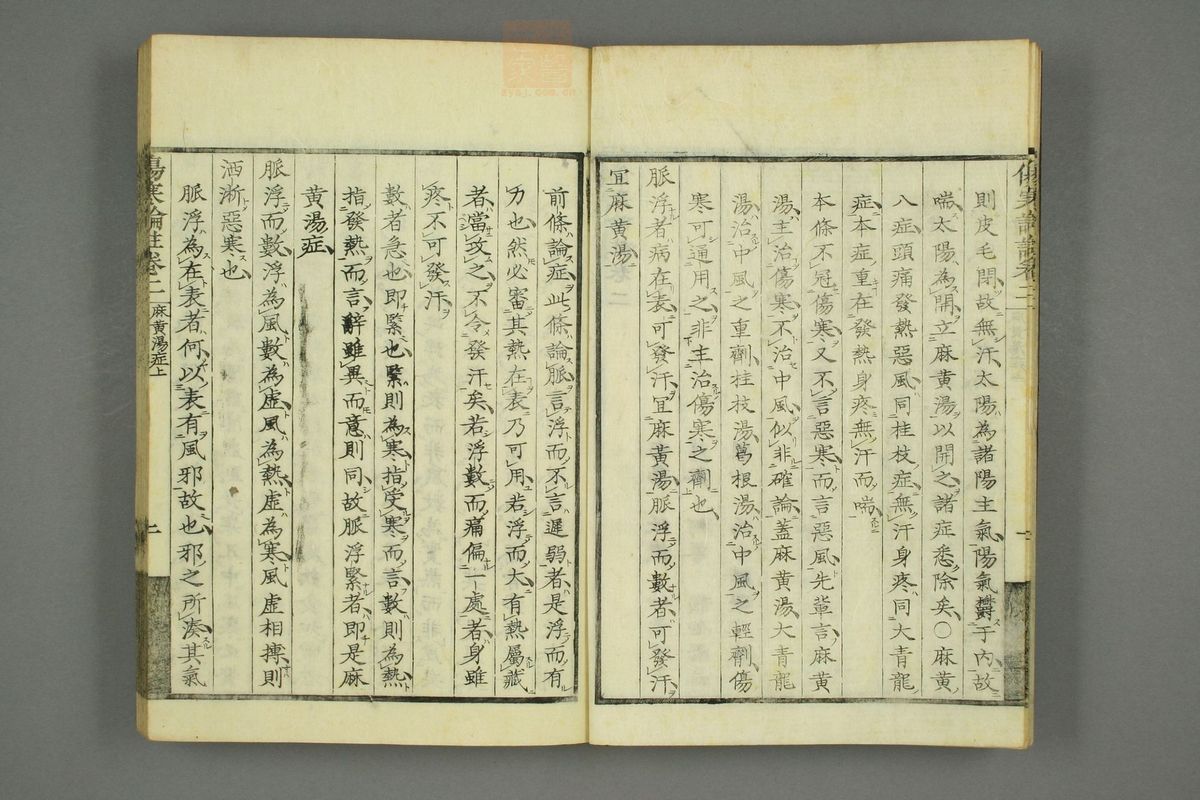 傷寒論註卷二
則皮毛閉故無汗太陽為諸陽主氣陽氣鬱于內故
喘太陽為開立麻黃湯以開之諸症悉除矣○麻黃
八症頭痛發熱惡風同桂枝症無汗身疼同大青龍
症本症重在發熱身疼無汗而喘
本條不冠傷寒又不言惡寒而言惡風先輩言麻黃
湯主治傷寒不治中風似非確論蓋麻黃湯大青龍
湯治中風之重劑桂枝湯葛根湯治中風之輕劑傷
寒可通用之非主治傷寒之劑也
脈浮者病在表可發汗宜麻黃湯脈浮而數者可發汗
宜麻黃湯
前條論症此條論脈言浮而不言遲弱者是浮而有
力也然必審其熱在表乃可用若浮而大有熱屬臟
者當攻之不令發汗矣若浮數而痛偏一處者身雖
疼不可發汗
數者急也即緊也緊則為寒指受寒而言數則為熱
指發熱而言辭雖異而意則同故脈浮緊者即是麻
黃湯症
脈浮而數浮為風數為虛風為熱虛為寒風虛相摶則
洒淅惡寒也
脈浮為在表者何以表有風邪故也邪之所湊其氣
傷寒論註卷二 麻黃湯症上 二